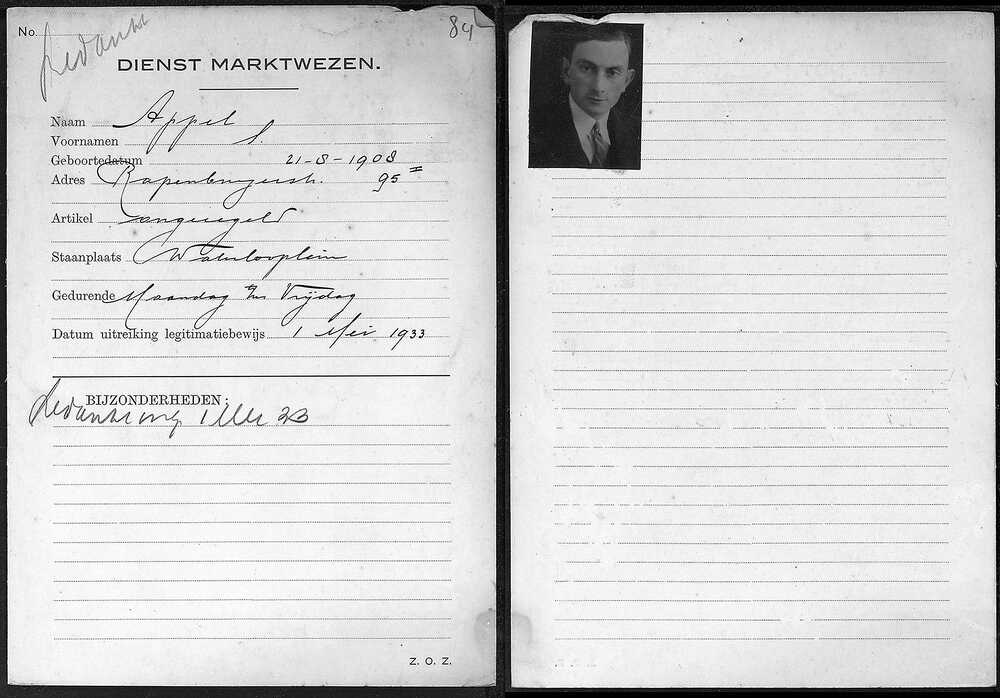 No
Bedankt
84
DIENST MARKTWEZEN.
Naam Appel
Voornamen S.
Geboortedatum 21-8-1908
Adres Rapenburgerstr. 95 II
Artikel ongeregeld
Staanplaats Waterlooplein
Gedurende Maandag t/m Vrijdag
Datum uitreiking legitimatiebewijs 1 Mei 1933
BIJZONDERHEDEN:
Z. O. Z.